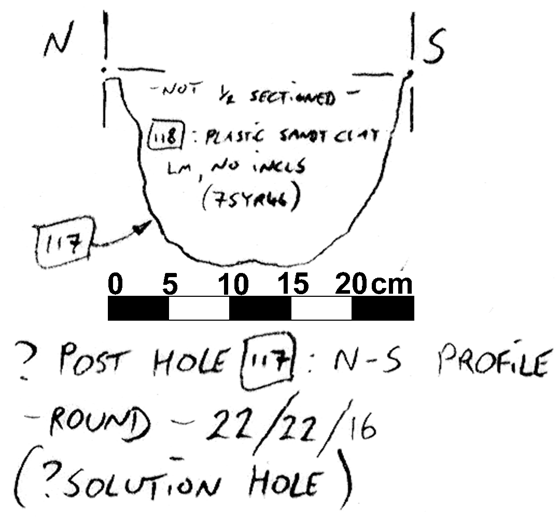 N S
-NOT 1/2 SECTIONED -
118 : PLASTIC SANDY CLAY
LM, NO INCLS
(75YR46)
117
0 5 10 15 20 cm
? POST HOLE 117 : N-S PROFILE
- ROUND - 22/22/16
(?SOLUTION HOLE)